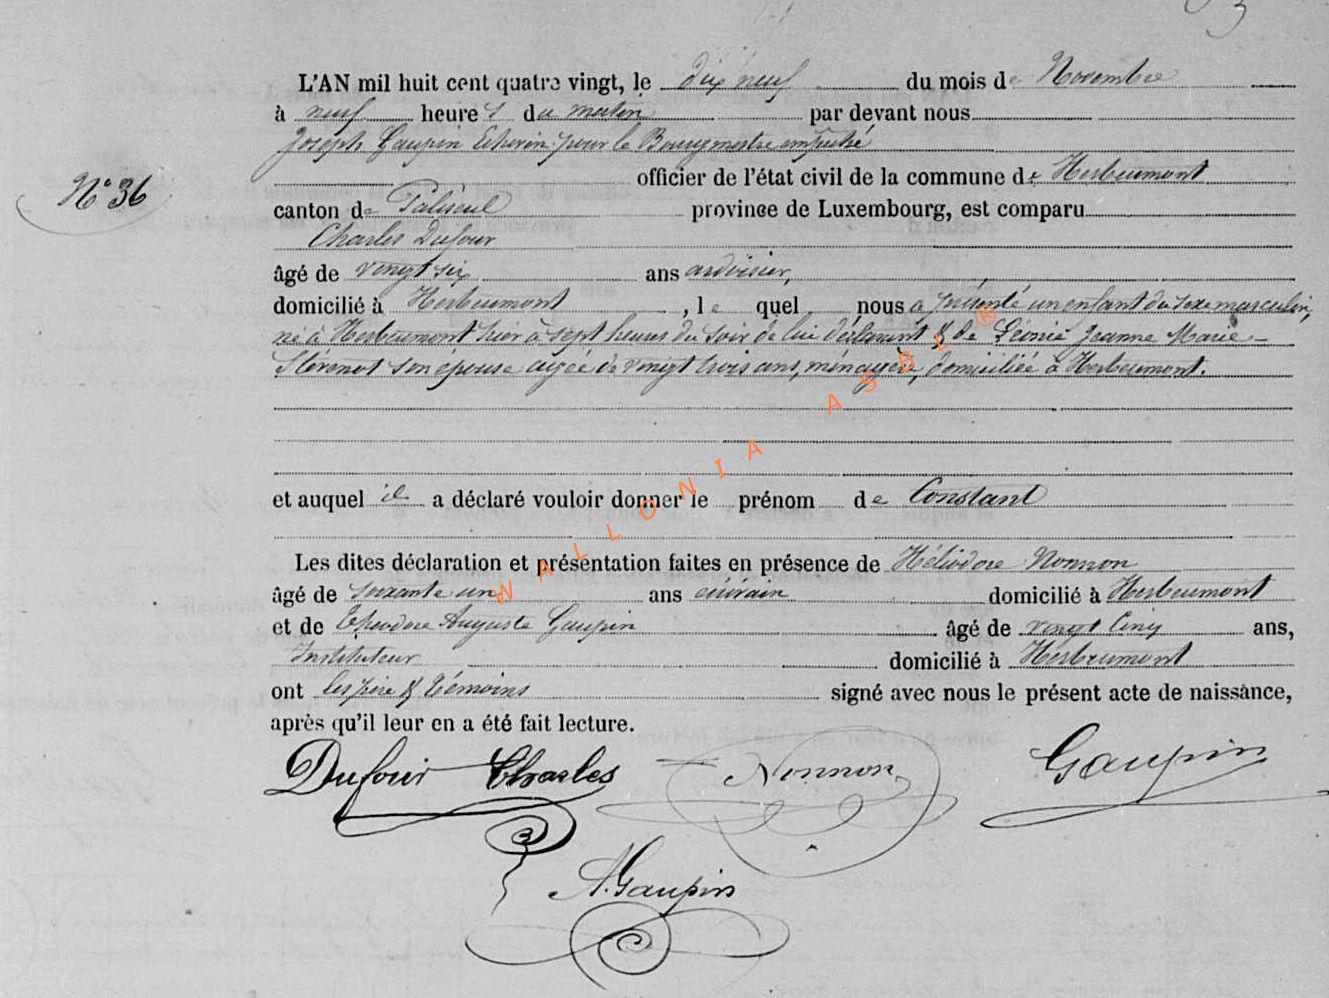 L'AN mil huit cent quatre vingt, le dix neuf du mois de Novembre
à neuf heures du matin par devant nous
Joseph Gaupin Echevin pour le Bourgmestre empêché
officier de l'état civil de la commune de Herbeumont
N° 36
canton de Paliseul province de Luxembourg, est comparu
Charles Dufour
âgé de vingt six ans ardoisier,
domicilié à Herbeumont, le quel nous a présenté un enfant du sexe masculin,
né à Herbeumont hier à sept heures du soir de lui déclarant & de Léonie Jeanne Marie
son épouse agée de vingt trois ans, ménagère, domiciliée à Herbeumont.
et auquel il a déclaré vouloir donner le prénom de Constant
Les dites déclaration et présentation faites en présence de Héliodore Nonnon
âgé de soixante un ans domicilié à Herbeumont
et de Théodore Auguste Gaupin âgé de vingt cinq ans,
Instituteur domicilié à Herbeumont
ont les père & témoins signé avec nous le présent acte de naissance,
après qu'il leur en a été fait lecture.
Dufour Charles Nonnon Gaupin
A. Gaupin
WALLONIA ASBL ®